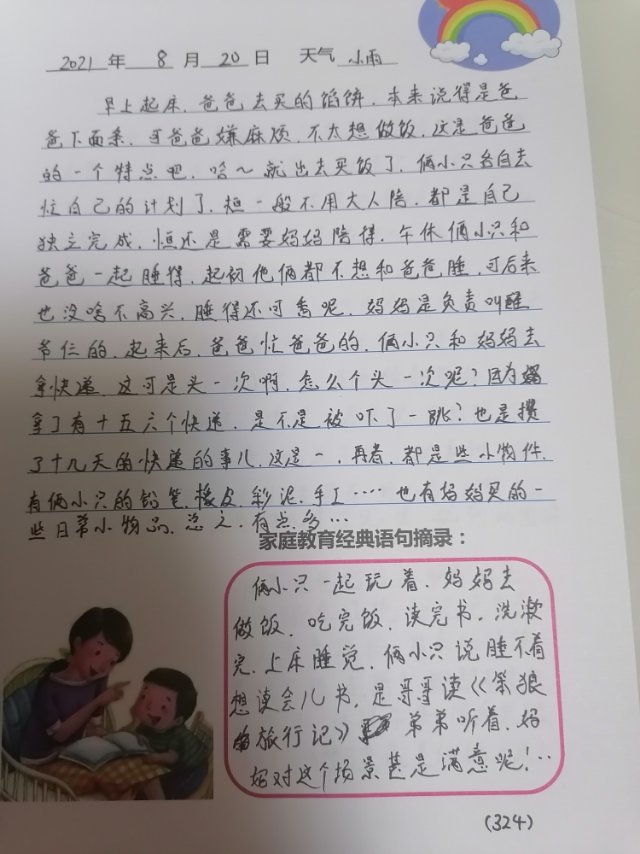 2021 年 8 月 20 日 天气 小雨
早上起床、爸爸去买的馅饼、本来说得是爸
爸下面条、可爸爸嫌麻烦、不太想做饭、这是爸爸
的一个特点吧、哈～就出去买饭了、俩小只各自去
忙自己的计划了、一般不用大人陪、都是自己
独立完成、但还是需要妈妈陪得、午休俩小只和
爸爸一起睡得、起初他俩都不想和爸爸睡、可后来
也没啥不高兴、睡得还可香呢、妈妈是负责叫醒
爷仨的、起来后、爸爸忙爸爸的、俩小只和妈妈去
拿快递、这可是头一次啊、怎么个头一次呢?因为
拿了有十五六个快递、是不是被吓了一跳?也是攒
了十几天的快递的事儿、这是一、再者、都是些小物件、
有俩小只的铅笔、橡皮、彩泥、手工……也有妈妈买的一
些日常小物品、总之、有点多…
家庭教育经典语句摘录：
俩小只一起玩着、妈妈去
做饭、吃完饭、读完书、洗漱
完、上床睡觉、俩小只说睡不着
想读会儿书、是哥哥读《笨狼
旅行记》弟弟听着、妈
妈对这个场景甚是满意呢!..
(324)